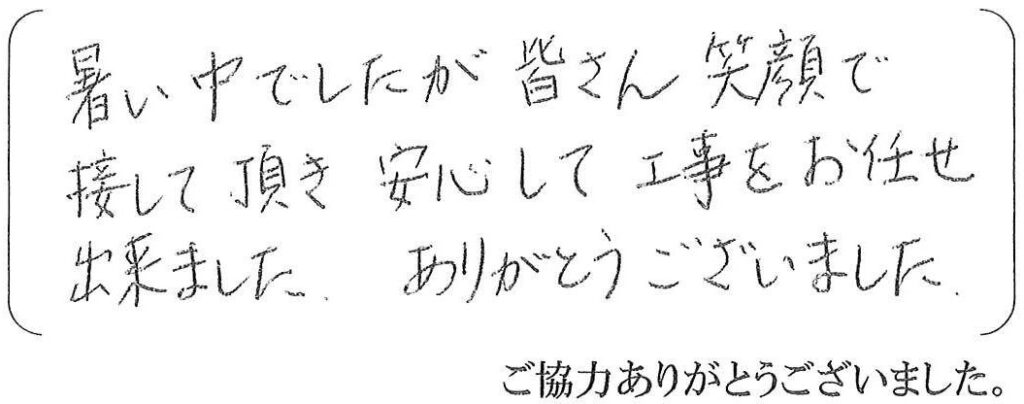 暑い中でしたが 皆さん 笑顔で
接して頂き 安心して 工事をお任せ
出来ました. ありがとうございました.
ご協力ありがとうございました。